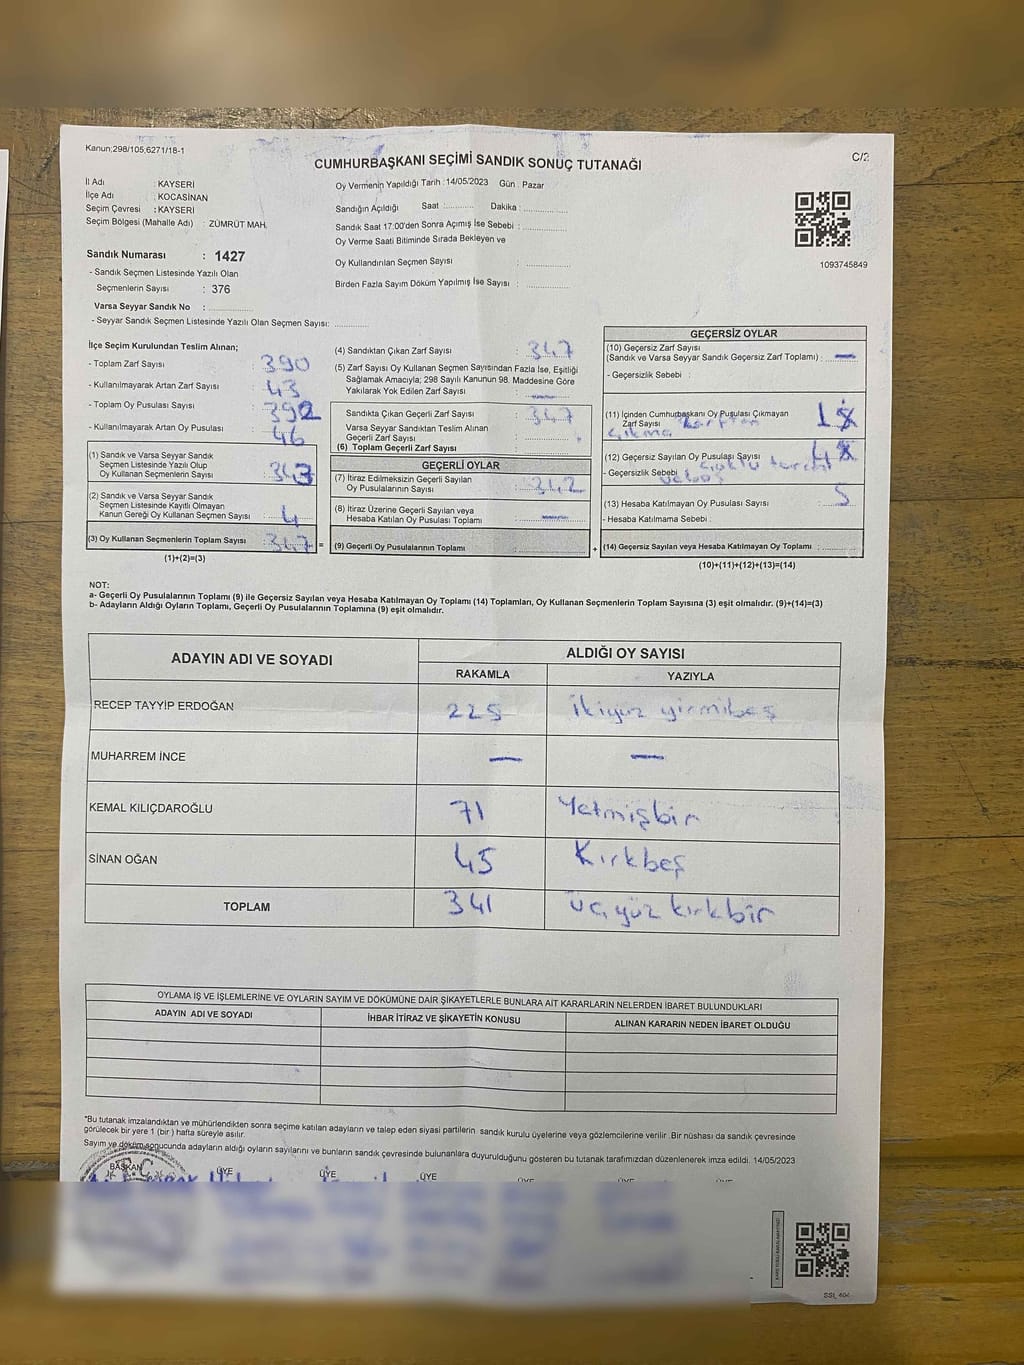 Kanun;298/105,6271/18-1
CUMHURBAŞKANI SEÇİMİ SANDIK SONUÇ TUTANAĞI
C/2
İl Adı : KAYSERİ
İlçe Adı : KOCASİNAN
Seçim Çevresi : KAYSERİ
Seçim Bölgesi (Mahalle Adı) : ZÜMRÜT MAH.
Sandık Numarası : 1427
- Sandık Seçmen Listesinde Yazılı Olan
Seçmenlerin Sayısı : 376
Varsa Seyyar Sandık No :
- Seyyar Sandık Seçmen Listesinde Yazılı Olan Seçmen Sayısı:
Oy Vermenin Yapıldığı Tarih : 14/05/2023 Gün : Pazar
Sandığın Açıldığı Saat : Dakika :
Sandık Saat 17:00'den Sonra Açımış İse Sebebi :
Oy Verme Saati Bitiminde Sırada Bekleyen ve
Oy Kullandırılan Seçmen Sayısı :
Birden Fazla Sayım Döküm Yapılmış İse Sayısı :
1093745849
İlçe Seçim Kurulundan Teslim Alınan;
- Toplam Zarf Sayısı : 390
- Kullanılmayarak Artan Zarf Sayısı : 43
- Toplam Oy Pusulası Sayısı : 392
- Kullanılmayarak Artan Oy Pusulası : 46
(1) Sandık ve Varsa Seyyar Sandık
Seçmen Listesinde Yazılı Olup
Oy Kullanan Seçmenlerin Sayısı : 343
(2) Sandık ve Varsa Seyyar Sandık
Seçmen Listesinde Kayıtlı Olmayan
Kanun Gereği Oy Kullanan Seçmen Sayısı : 4
(3) Oy Kullanan Seçmenlerin Toplam Sayısı : 347 =
(1)+(2)=(3)
(4) Sandıktan Çıkan Zarf Sayısı : 347
(5) Zarf Sayısı Oy Kullanan Seçmen Sayısından Fazla İse, Eşitliği
Sağlamak Amacıyla; 298 Sayılı Kanunun 98. Maddesine Göre
Yakılarak Yok Edilen Zarf Sayısı : —
Sandıkta Çıkan Geçerli Zarf Sayısı : 347
Varsa Seyyar Sandıktan Teslim Alınan
Geçerli Zarf Sayısı :
(6) Toplam Geçerli Zarf Sayısı
GEÇERLİ OYLAR
(7) İtiraz Edilmeksizin Geçerli Sayılan
Oy Pusulalarının Sayısı : 342
(8) İtiraz Üzerine Geçerli Sayılan veya
Hesaba Katılan Oy Pusulası Toplamı : —
(9) Geçerli Oy Pusulalarının Toplamı : +
GEÇERSİZ OYLAR
(10) Geçersiz Zarf Sayısı
(Sandık ve Varsa Seyyar Sandık Geçersiz Zarf Toplamı) : —
- Geçersizlik Sebebi :
(11) İçinden Cumhurbaşkanı Oy Pusulası Çıkmayan
Zarf Sayısı : 1
(12) Geçersiz Sayılan Oy Pusulası Sayısı : 4
- Geçersizlik Sebebi
(13) Hesaba Katılmayan Oy Pusulası Sayısı : 5
- Hesaba Katılmama Sebebi :
(14) Geçersiz Sayılan veya Hesaba Katılmayan Oy Toplamı :
(10)+(11)+(12)+(13)=(14)
NOT:
a- Geçerli Oy Pusulalarının Toplamı (9) ile Geçersiz Sayılan veya Hesaba Katılmayan Oy Toplamı (14) Toplamları, Oy Kullanan Seçmenlerin Toplam Sayısına (3) eşit olmalıdır. (9)+(14)=(3)
b- Adayların Aldığı Oyların Toplamı, Geçerli Oy Pusulalarının Toplamına (9) eşit olmalıdır.
ADAYIN ADI VE SOYADI ALDIĞI OY SAYISI
RAKAMLA YAZIYLA
RECEP TAYYİP ERDOĞAN 225 ikiyüz yirmibeş
MUHARREM İNCE — —
KEMAL KILIÇDAROĞLU 71 Yetmişbir
SİNAN OĞAN 45 Kırkbeş
TOPLAM 341 üçyüz kırkbir
OYLAMA İŞ VE İŞLEMLERİNE VE OYLARIN SAYIM VE DÖKÜMÜNE DAİR ŞİKAYETLERLE BUNLARA AİT KARARLARIN NELERDEN İBARET BULUNDUKLARI
ADAYIN ADI VE SOYADI İHBAR İTİRAZ VE ŞİKAYETİN KONUSU ALINAN KARARIN NEDEN İBARET OLDUĞU
"Bu tutanak imzalandıktan ve mühürlendikten sonra seçime katılan adayların ve talep eden siyasi partilerin sandık kurulu üyelerine veya gözlemcilerine verilir. Bir nüshası da sandık çevresinde
görülecek bir yere 1 (bir) hafta süreyle asılır.
Sayım ve döküm sonucunda adayların aldığı oyların sayılarını ve bunların sandık çevresinde bulunanlara duyurulduğunu gösteren bu tutanak tarafımızdan düzenlenerek imza edildi. 14/05/2023
BAŞKAN ÜYE ÜYE ÜYE
T.C.